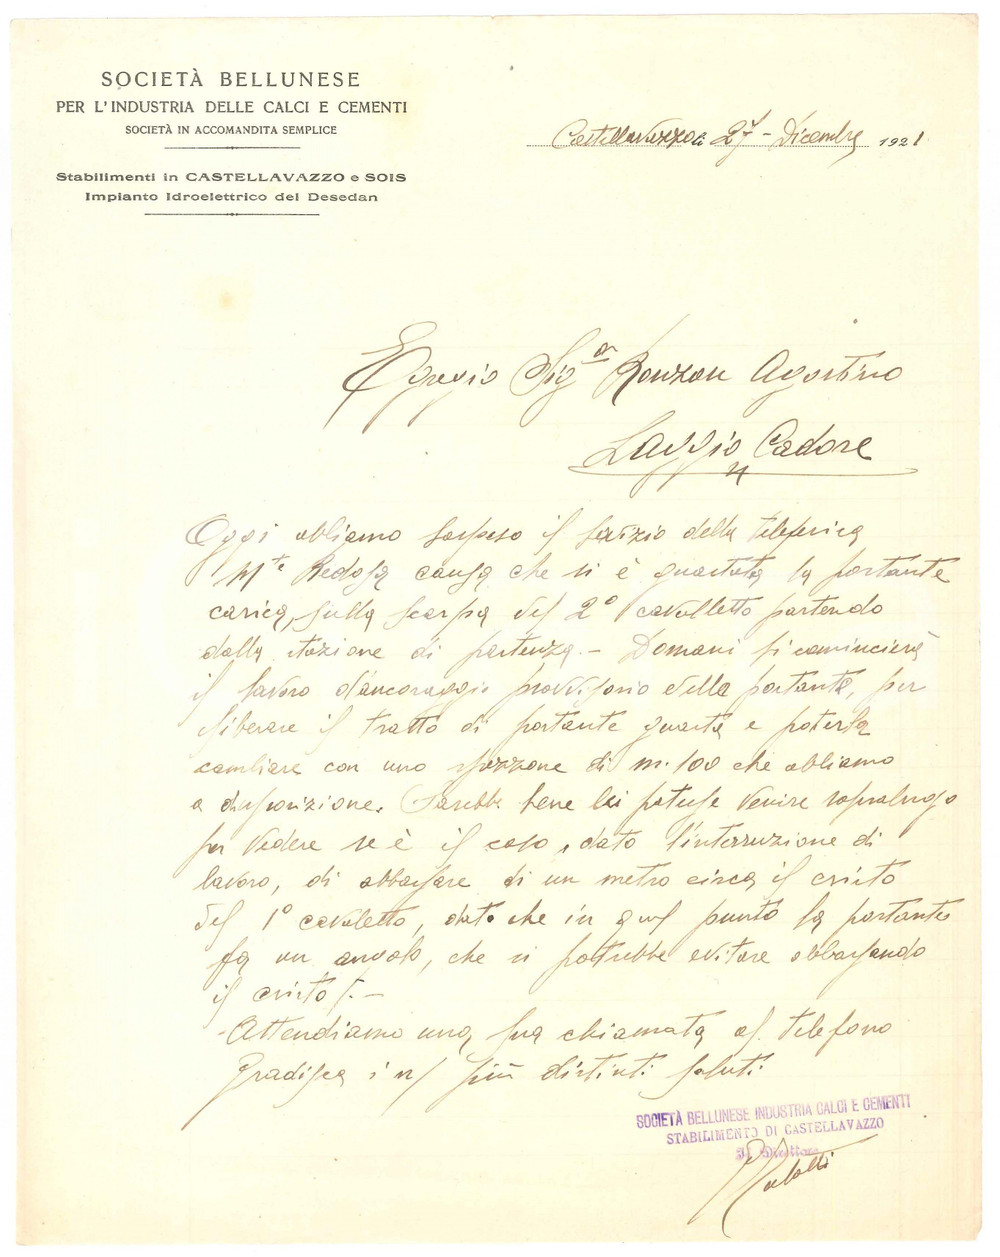 SOCIETÀ BELLUNESE
PER L'INDUSTRIA DELLE CALCI E CEMENTI
SOCIETÀ IN ACCOMANDITA SEMPLICE
Stabilimenti in CASTELLAVAZZO e SOIS
Impianto Idroelettrico del Desedan
Castellavazzo li 27 - Dicembre 1921
Egregio Sig.or Ronzon Agostino
Laggio Cadore
Oggi abbiamo sospeso il servizio della teleferica
M.te Redosa causa che si è guastata la portante
carica, sulla scarpa del 2° cavalletto partendo
dalla stazione di partenza. - Domani si comincierà
il lavoro d'ancoraggio provvisorio della portante, per
liberare il tratto di portante guasta e poterla
cambiare con uno spezzone di m. 100 che abbiamo
a disposizione. Sarebbe bene lei potesse venire sopraluogo
per vedere se è il caso, dato l'interruzione di
lavoro, di abbassare di un metro circa il cristo
del 1° cavaletto, dato che in quel punto la portante
fa un angolo, che si potrebbe evitare abbassando
il cristo /. -
- Attendiamo una sua chiamata al telefono
Gradisca i n/ più distinti saluti
SOCIETÀ BELLUNESE INDUSTRIA CALCI E CEMENTI
STABILIMENTO DI CASTELLAVAZZO
Il Direttore